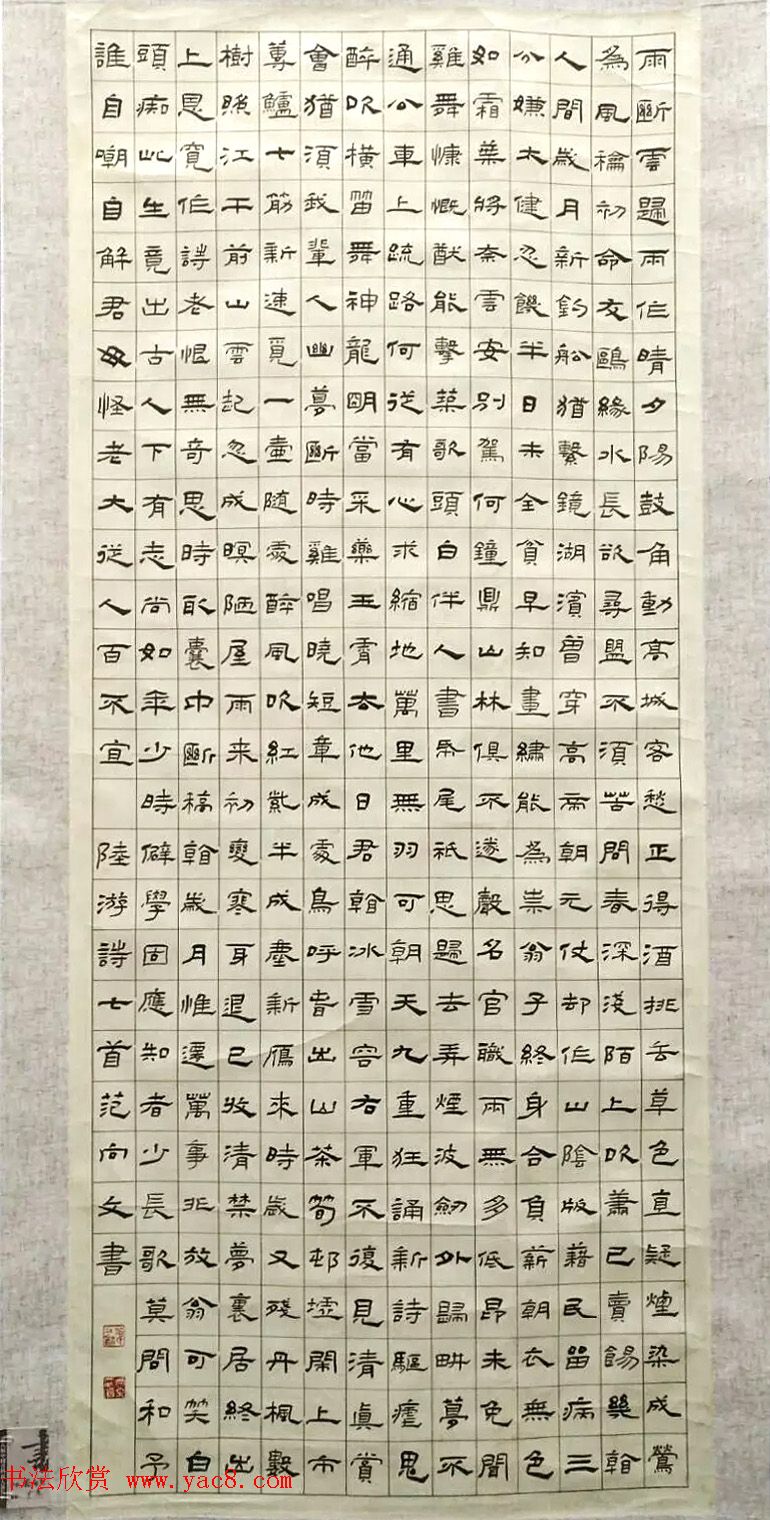 雨斷雲歸兩作晴夕陽鼓角動高城客愁正得酒排去草色直疑煙染成鶯
為風龢初命友鷗緣水長欲尋盟不須苦問春深淺陌上吹簫已賣餳幾看
人間歲月新釣船猶繫鏡湖濱曾穿高帝朝元仗却作山陰版藉民留病三
分嫌太健忍饑半日未全貧早知畫繡能為祟翁子終身合負薪朝衣無色
如霜葉將奈雲安別駕何鐘鼎山林俱不遂聲名官職兩無多低昂未免聞
雞舞慷慨猷能擊築歌頭白伴人書帋尾祇思歸去弄煙波劒外歸畊夢不
通公車上疏路何從有心求縮地萬里無羽可朝天九重狂誦新詩驅瘧鬼
醉吹橫笛舞神龍明當采藥玉霄去他日君看冰雪容右軍不復見清真賞
會猶須我輩人幽夢斷時雞唱曉短章成處鳥呼旾出山茶筍邨墟鬧上市
蓴鱸七筯新速覓一壺隨處醉風吹紅紫半成塵新雁來時歲又殘丹楓數
樹照江干前山雲起忽成暝陋屋雨来初變寒耳退已收清禁夢裏居終出
上恩寬作詩老恨無奇思時取囊中斷稿看歲月惟還萬事非放翁可笑白
頭痴此生竟出古人下有志尚如年少時僻學固應知者少長歌莫問和予
誰自嘲自解君毋怪老大從人百不宜 陸游詩七首范向文書
书法欣赏 www.yac8.com